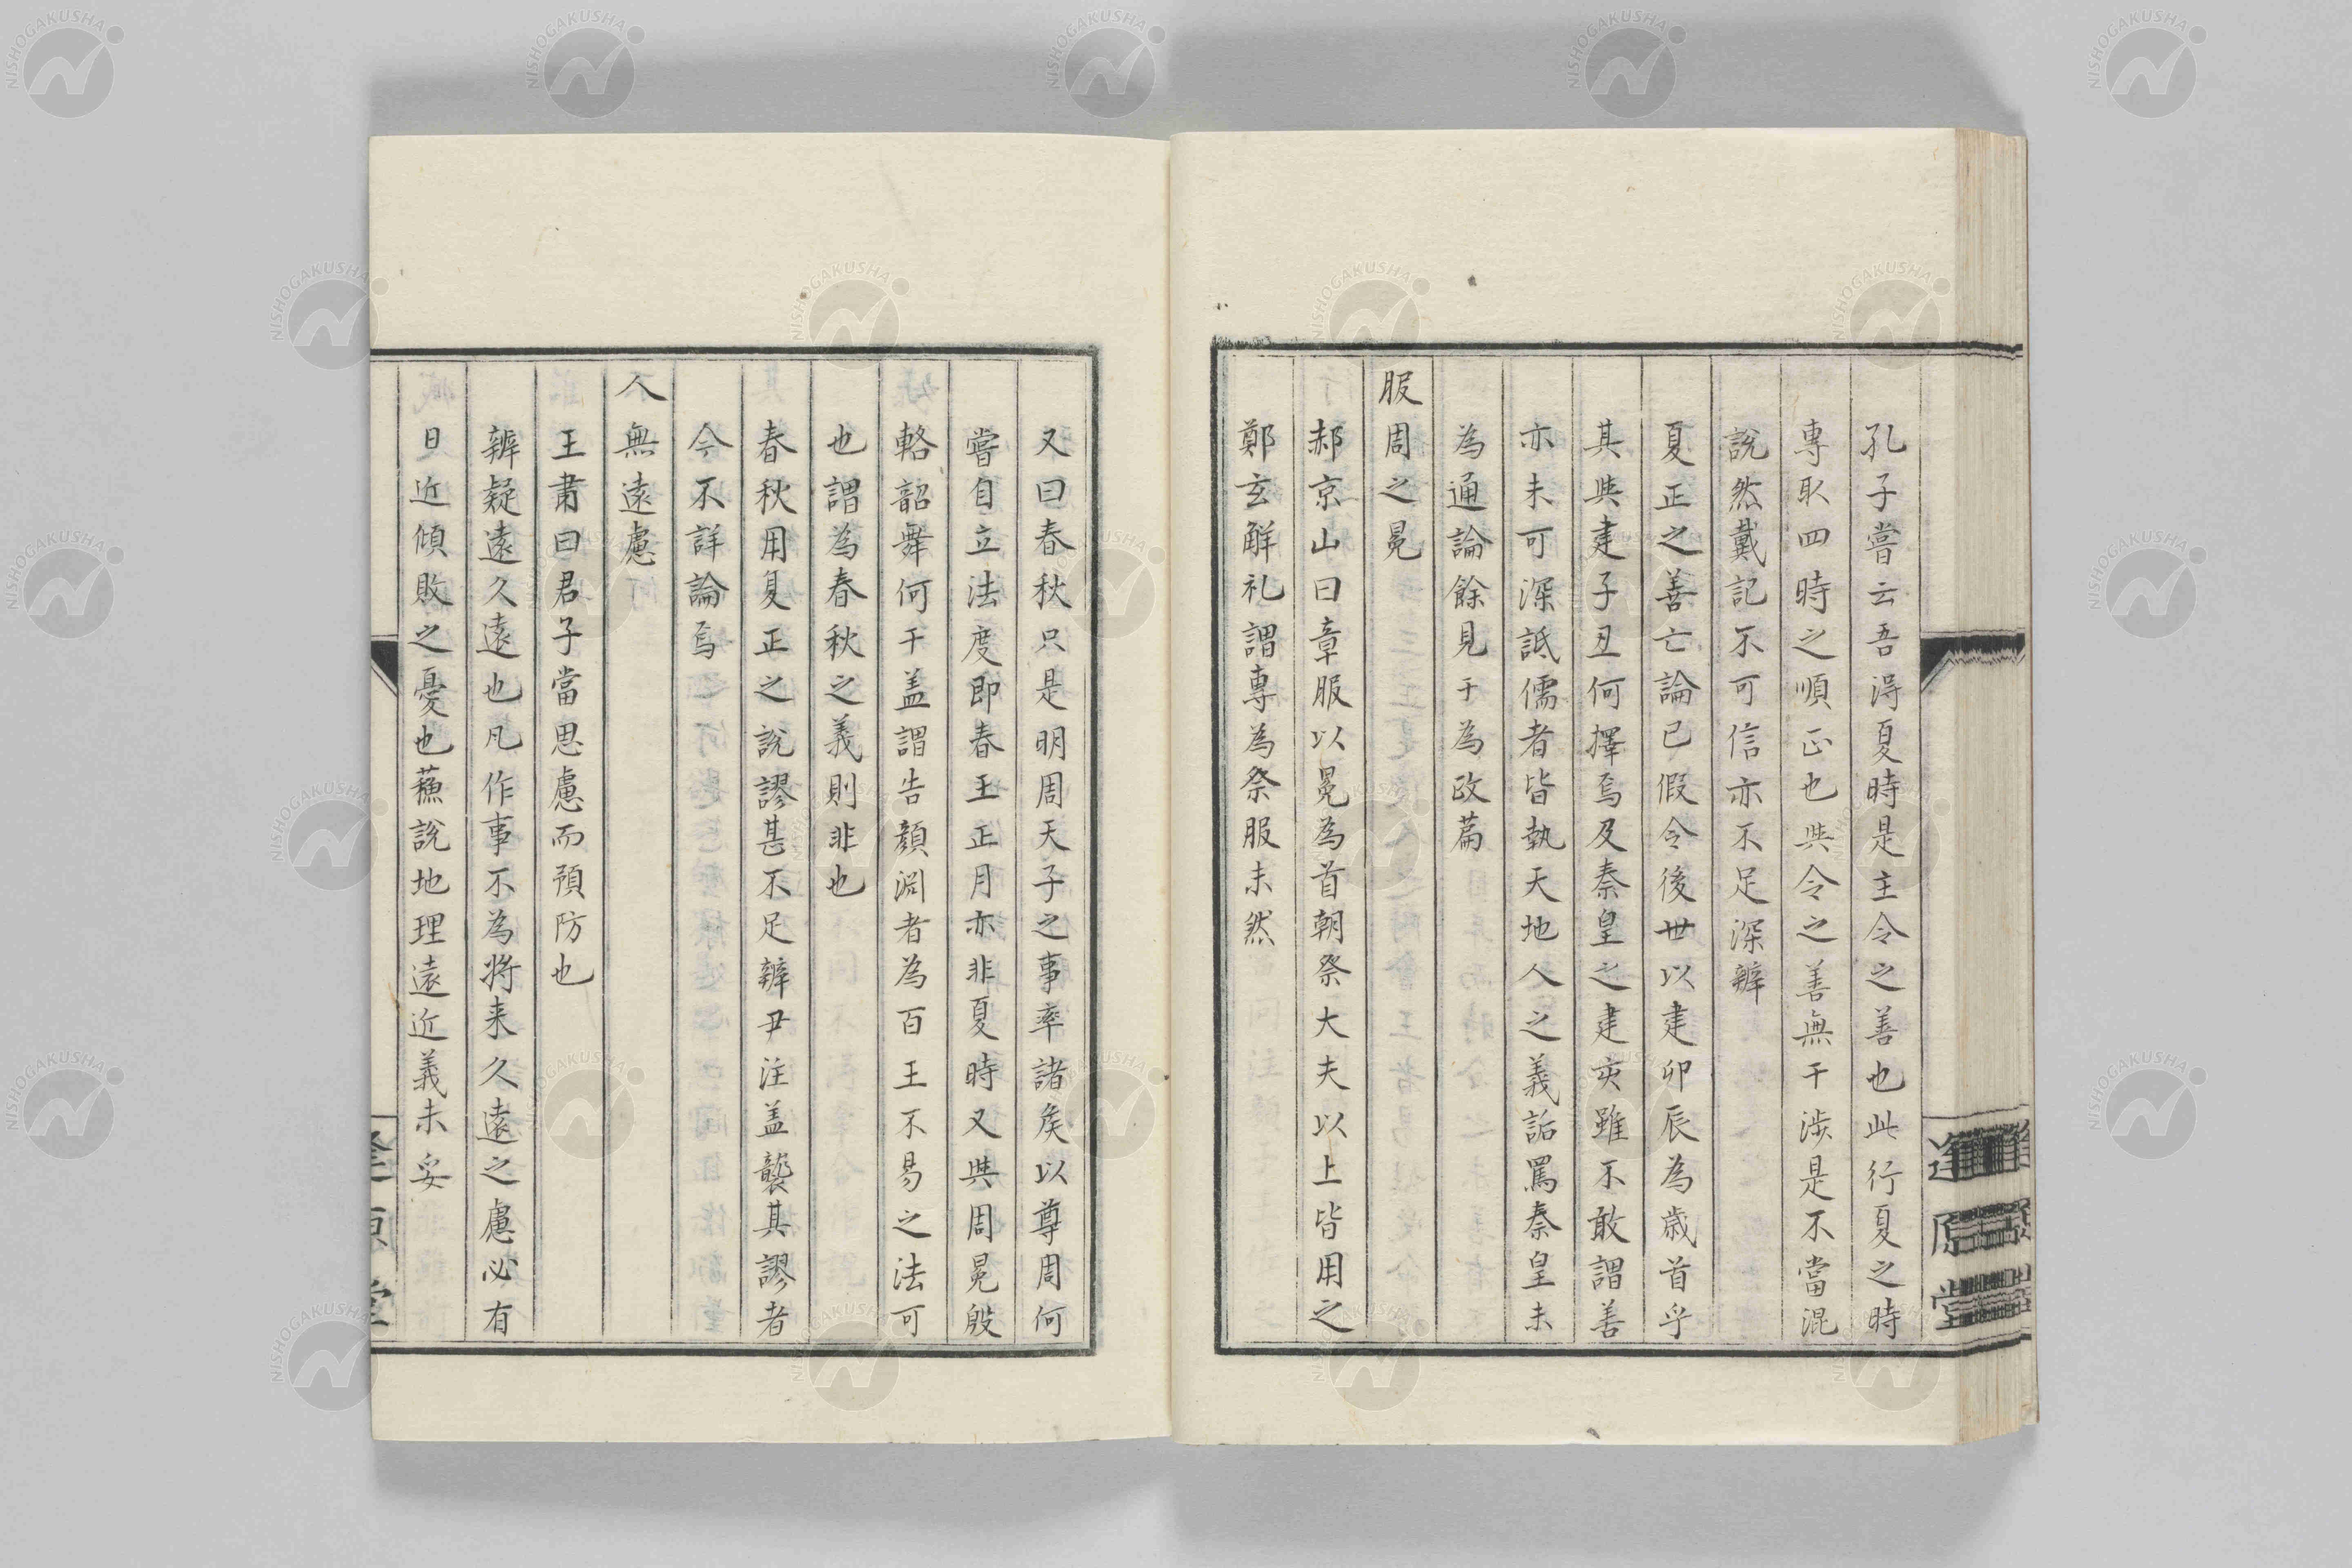 孔子嘗云吾得夏時是主令之善也此行夏之時
專取四時之順正也與令之善無干渉是不當混
說然戴記不可信亦不足深辨
夏正之善亡論已假令後世以建卯辰為歳首乎
其與建子丑何擇焉及秦皇之建亥雖不敢謂善
亦未可深詆儒者皆執天地人之義詬罵秦皇未
為通論餘見于為政篇
服周之冕
郝京山曰章服以冕為首朝祭大夫以上皆用之
鄭玄解礼謂專為祭服未然
逢原堂
又曰春秋只是明周天子之事率諸矦以尊周何
嘗自立法度即春王正月亦非夏時又與周冕殷
輅韶舞何干盖謂告顏淵者為百王不易之法可
也謂為春秋之義則非也
春秋用夏正之說謬甚不足辨尹注盖襲其謬者
今不詳論焉
人無遠慮
王肅曰君子當思慮而預防也
辨疑遠久遠也凡作事不為將来久遠之慮必有
日近傾敗之憂也蘓說地理遠近義未妥
逢原堂
NISHOGAKUSHA